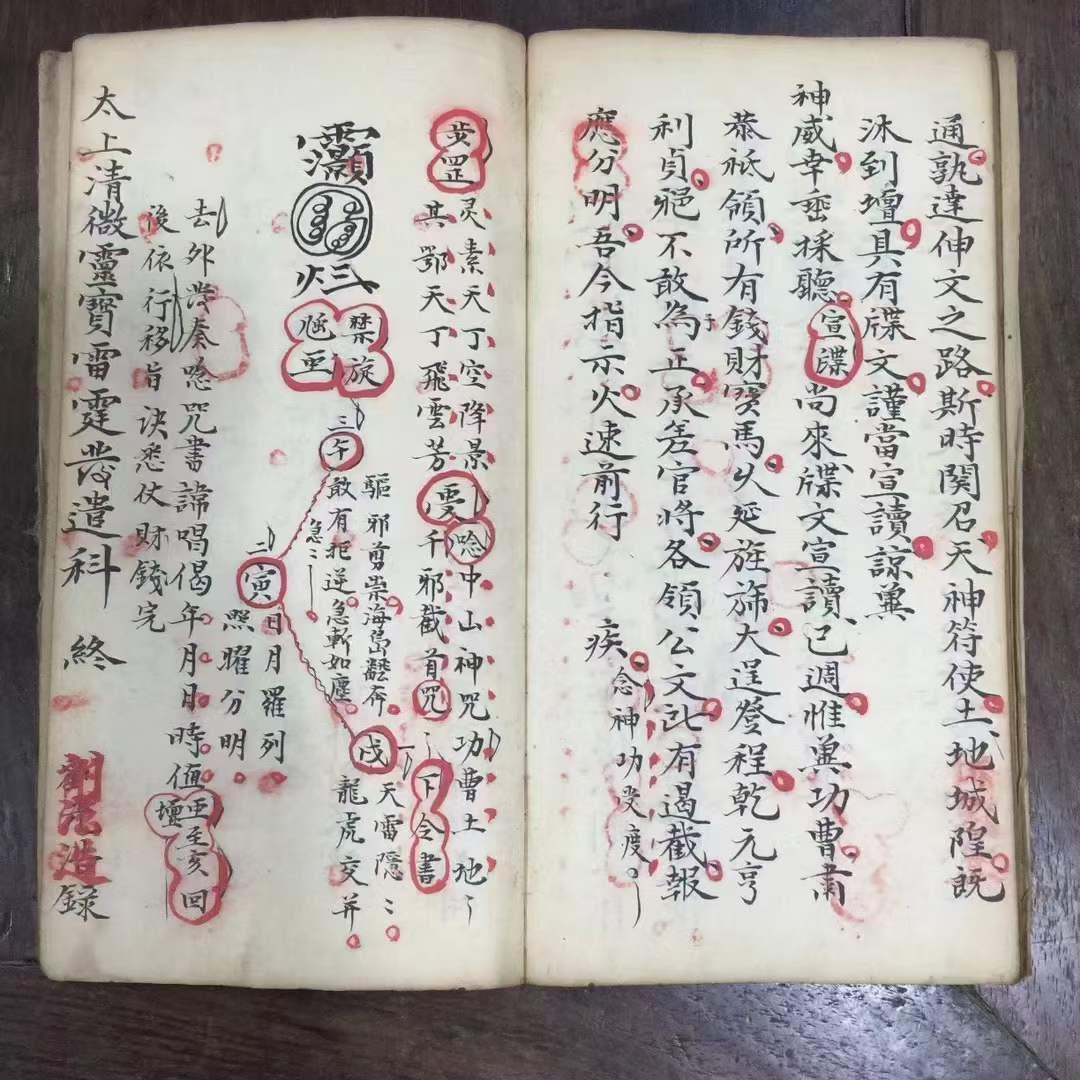 通孰達伸文之路斯時関召天神符使土地城隍既
沐到壇具有牒文謹當宣讀諒冀
神威幸垂採聽宣牒尚來牒文宣讀已週惟冀功曹肅
恭祗領所有錢財寳馬火延旌斾大逞登程乾元亨
利貞䘮不敢為正承差官將各領公文訖有遏截報
應分明吾今指示火速前行 疾念神功叐度
步罡
灵素天丁空降景
其鄂天丁飛雲芳
唸中山神咒功曹土地
千邪截首咒
下令書
禁旋
三午
驅邪剪祟海島翻奔
敢有拒逆急斬如塵
急
戌
一
天雷隱隱
龍虎交并
二
寅
日月羅列
照曜分明
去外發奏唸咒書諱唱偈年月日時值亞至亥回壇
後依行移旨訣悉仗財錢完
太上清微靈寳雷霆發遣科 終
劉法浩録